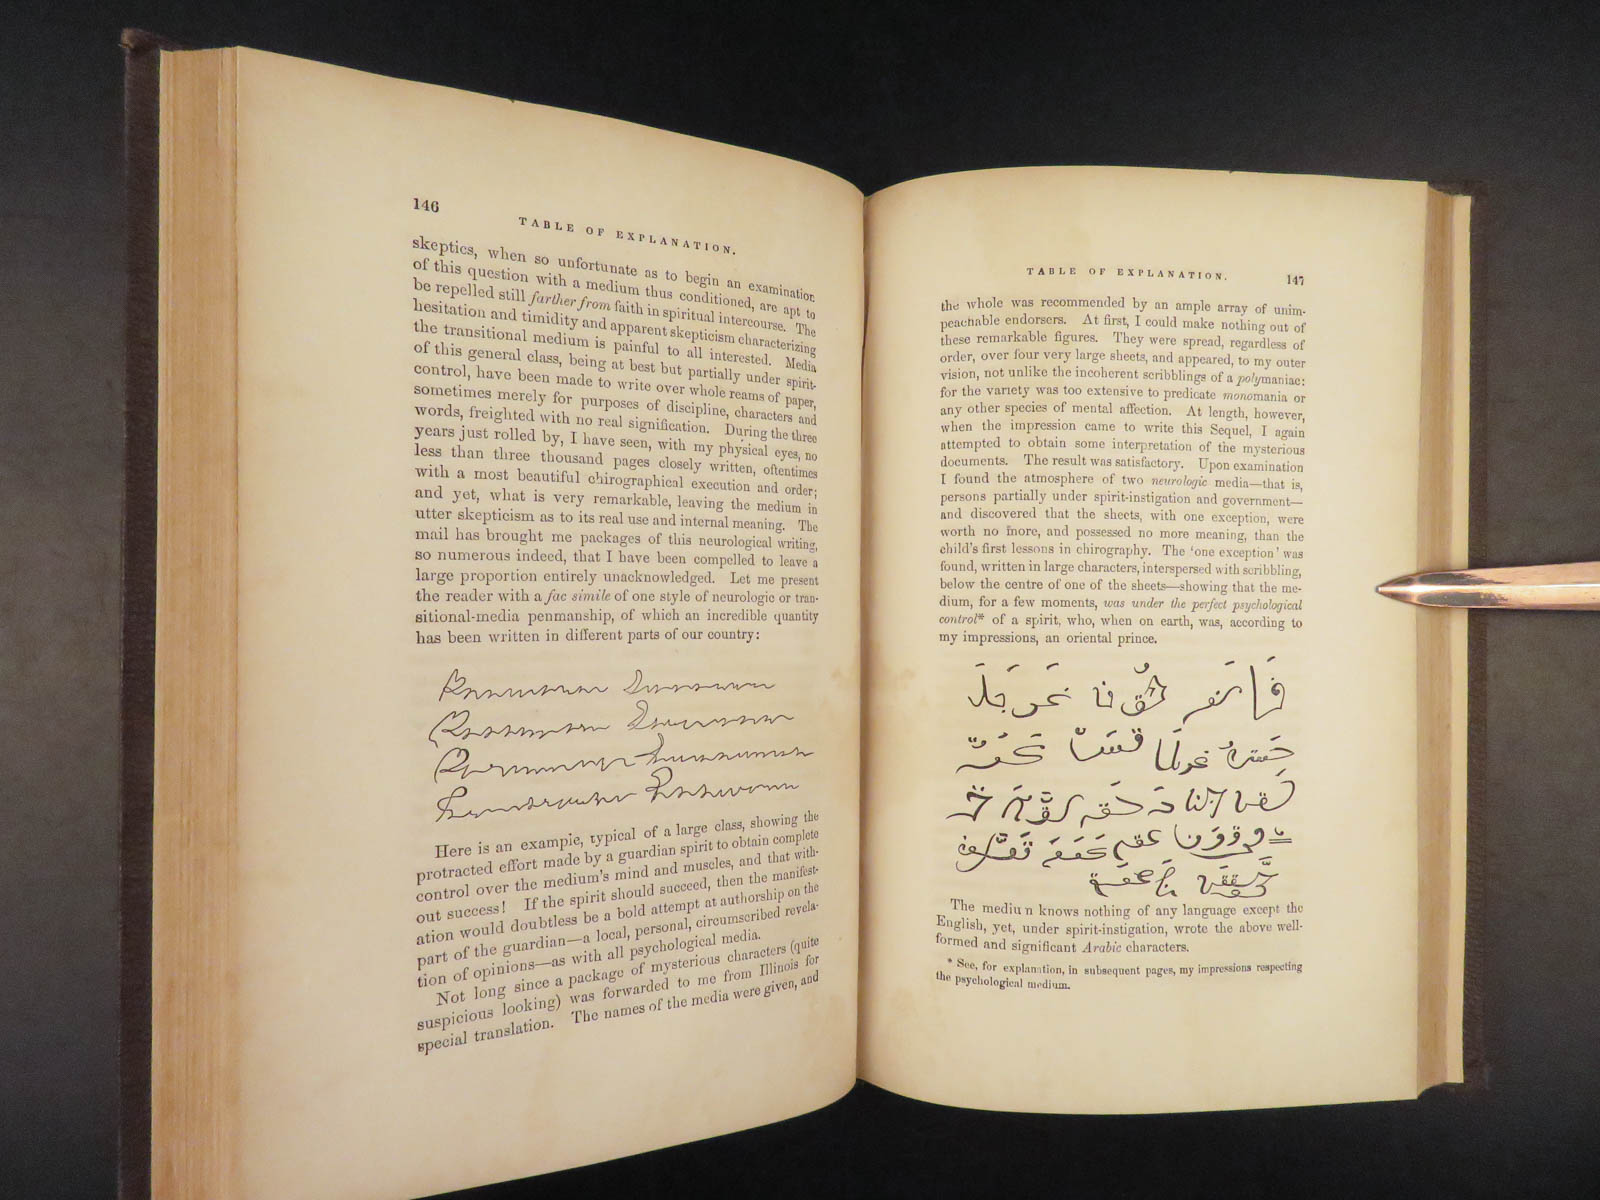 146
TABLE OF EXPLANATION.
skeptics, when so unfortunate as to begin an examination
of this question with a medium thus conditioned, are apt to
be repelled still farther from faith in spiritual intercourse. The
hesitation and timidity and apparent skepticism characterizing
the transitional medium is painful to all interested. Media
of this general class, being at best but partially under spirit-
control, have been made to write over whole reams of paper,
sometimes merely for purposes of discipline, characters and
words, freighted with no real signification. During the three
years just rolled by, I have seen, with my physical eyes, no
less than three thousand pages closely written, oftentimes
with a most beautiful chirographical execution and order;
and yet, what is very remarkable, leaving the medium in
utter skepticism as to its real use and internal meaning. The
mail has brought me packages of this neurological writing,
so numerous indeed, that I have been compelled to leave a
large proportion entirely unacknowledged. Let me present
the reader with a fac simile of one style of neurologic or tran-
sitional-media penmanship, of which an incredible quantity
has been written in different parts of our country:
Here is an example, typical of a large class, showing the
protracted effort made by a guardian spirit to obtain complete
control over the medium's mind and muscles, and that with-
out success! If the spirit should succeed, then the manifest-
ation would doubtless be a bold attempt at authorship on the
part of the guardian—a local, personal, circumscribed revela-
tion of opinions—as with all psychological media.
Not long since a package of mysterious characters (quite
suspicious looking) was forwarded to me from Illinois for
special translation. The names of the media were given, and
TABLE OF EXPLANATION. 147
the whole was recommended by an ample array of unim-
peachable endorsers. At first, I could make nothing out of
these remarkable figures. They were spread, regardless of
order, over four very large sheets, and appeared, to my outer
vision, not unlike the incoherent scribblings of a polymaniac:
for the variety was too extensive to predicate monomania or
any other species of mental affection. At length, however,
when the impression came to write this Sequel, I again
attempted to obtain some interpretation of the mysterious
documents. The result was satisfactory. Upon examination
I found the atmosphere of two neurologic media—that is,
persons partially under spirit-instigation and government—
and discovered that the sheets, with one exception, were
worth no more, and possessed no more meaning, than the
child's first lessons in chirography. The 'one exception' was
found, written in large characters, interspersed with scribbling,
below the centre of one of the sheets—showing that the me-
dium, for a few moments, was under the perfect psychological
control* of a spirit, who, when on earth, was, according to
my impressions, an oriental prince.
The medium knows nothing of any language except the
English, yet, under spirit-instigation, wrote the above well-
formed and significant Arabic characters.
* See, for explanation, in subsequent pages, my impressions respecting
the psychological medium.